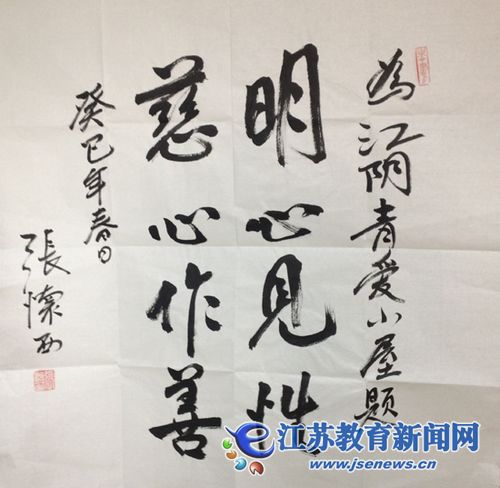 为江阴青爱小屋题
明心见性
慈心作善
癸巳年春日
張懷西
江苏教育新闻网
www.jsenews.cn